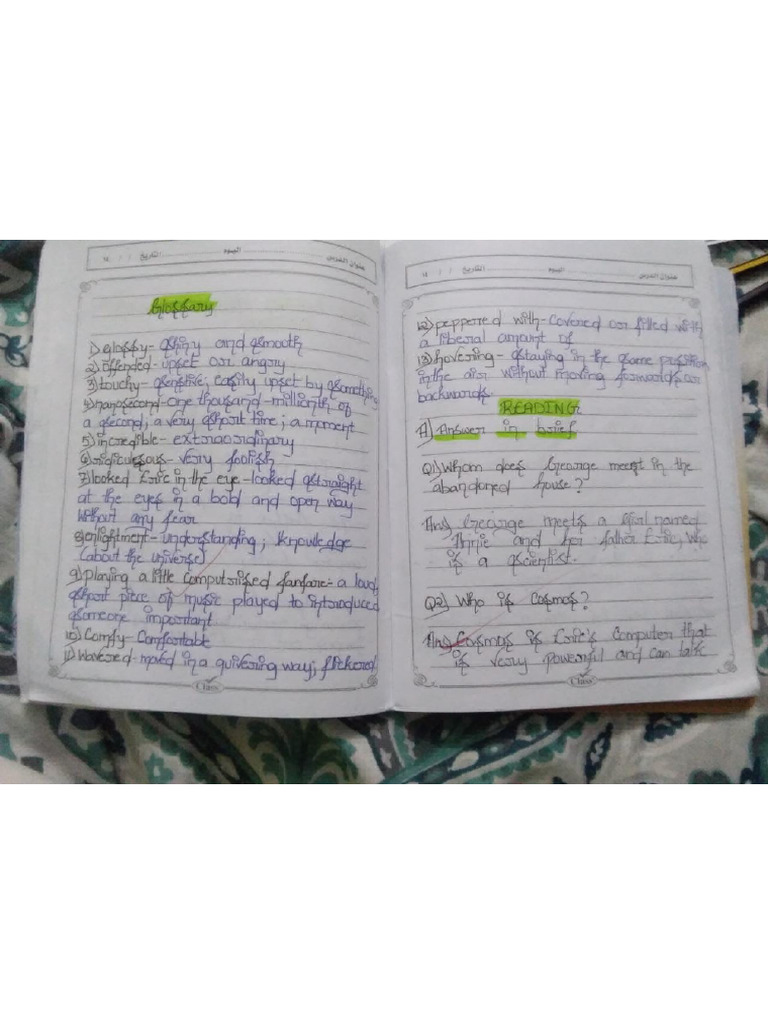 عنوان الدرس اليوم التاريخ / / ١٤
Glossary
1) glossy - shiny and smooth
2) offended - upset or angry
3) touchy - sensitive; easily upset by something
4) nanosecond - one thousand - millionth of
a second; a very short time; a moment
5) incredible - extraordinary
6) ridiculous - very foolish
7) looked Eric in the eye - looked straight
at the eyes in a bold and open way
without any fear
8) enlightment - understanding; knowledge
(about the universe)
9) playing a little computerised fanfare - a loud,
short piece of music played to introduced
someone important
10) Comfy - Comfortable
11) Wavered - moved in a quivering way; flickered
Class
عنوان الدرس اليوم التاريخ / / ١٤
12) peppered with - Covered or filled with
a liberal amount of
13) hovering - staying in the same position
in the air without moving forwards or
backwards.
READING
A) Answer in brief
Q1) Whom does George meet in the
abandoned house?
Ans) George meets a girl named
Annie and her father Eric, who
is a scientist.
Q2) Who is Cosmos?
Ans) Cosmos is Eric's Computer that
is very powerful and can talk
Class